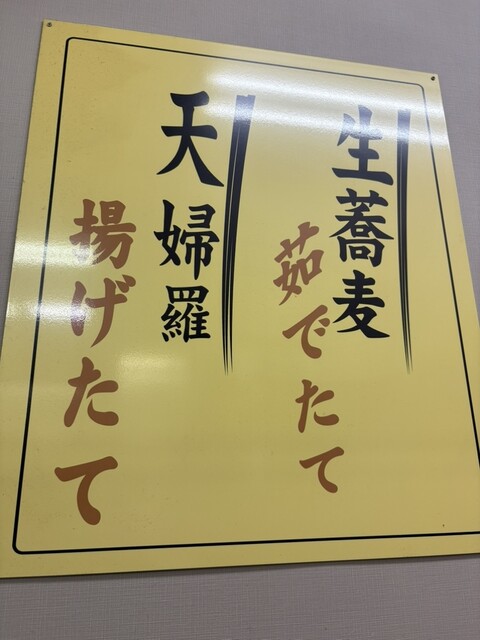 生蕎麦
茹でたて
天婦羅
揚げたて